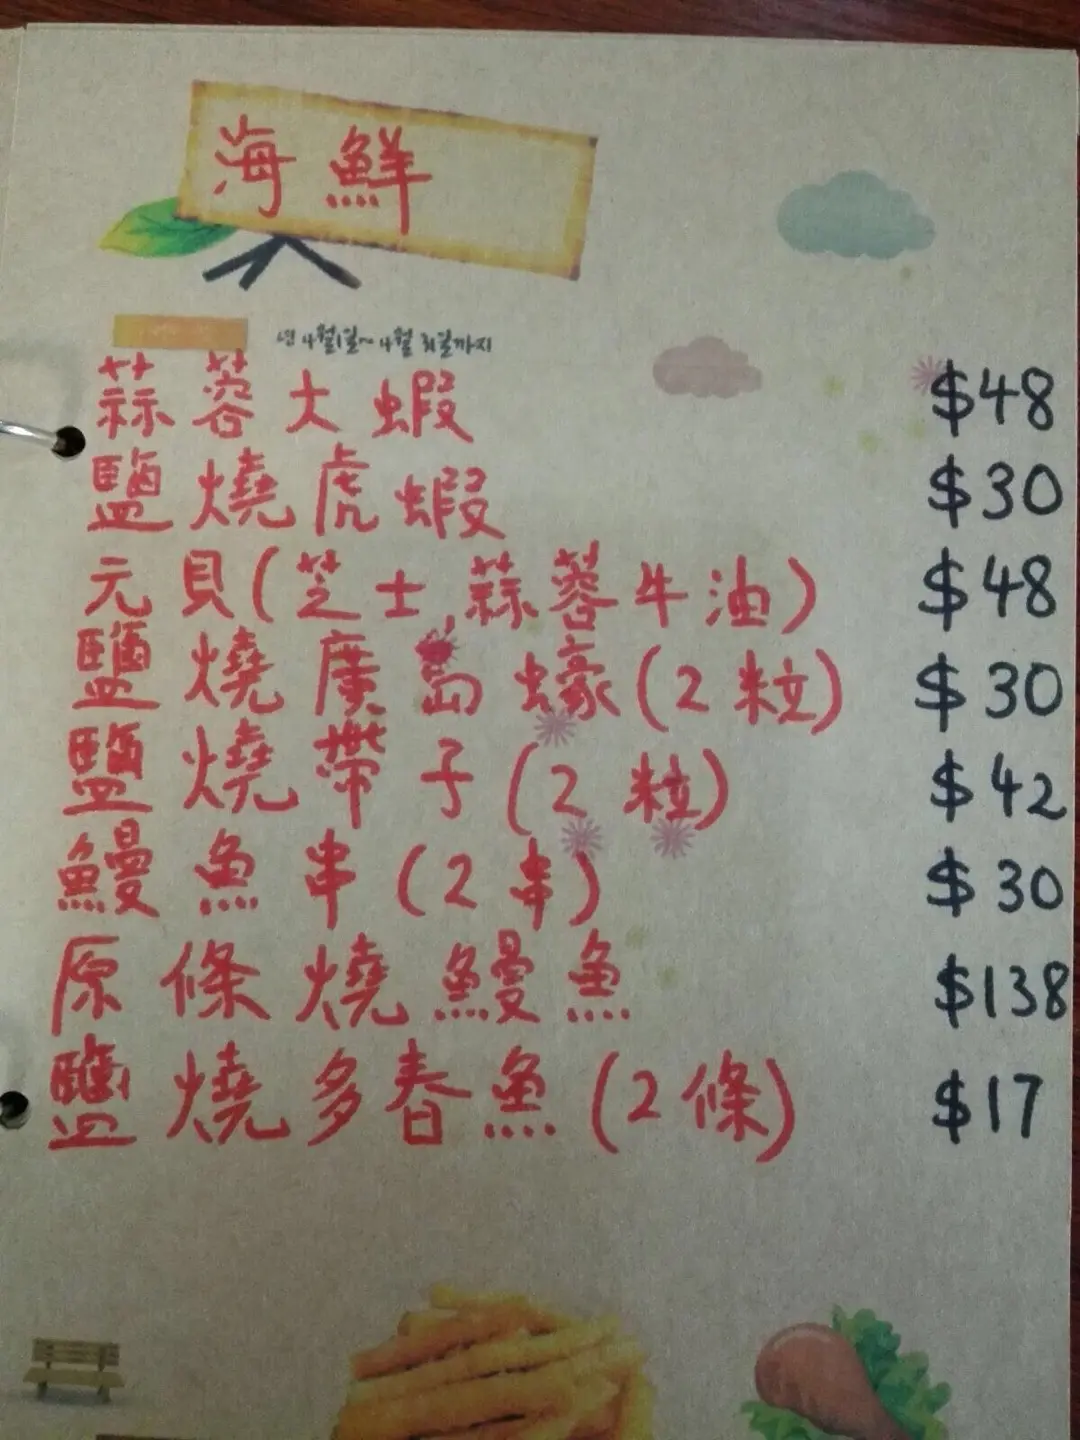 海鮮
년 4월1일~4월 31일까지
蒜蓉大蝦 $48
鹽燒虎蝦 $30
元貝(芝士,蒜蓉牛油) $48
鹽燒廣島蠔(2粒) $30
鹽燒帶子(2粒) $42
鰻魚串(2串) $30
原條燒鰻魚 $138
鹽燒多春魚(2條) $17